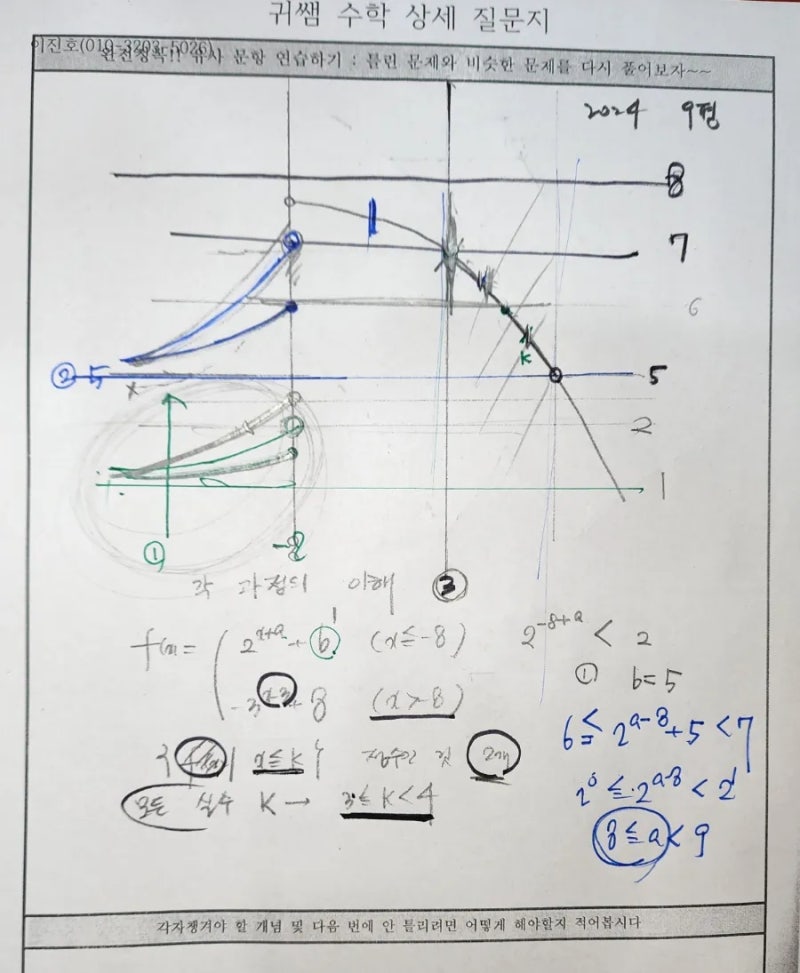 귀쌤 수학 상세 질문지
이진호(010-3203-5026)
완전정복!! 유사 문항 연습하기 : 틀린 문제와 비슷한 문제를 다시 풀어보자~~
2024 9평
8
7
6
② 5 5
2
1
① -8
각 과정의 이해 ③
f(x)= 2^{x+a} + b (x≤-8) 2^{-8+a} < 2
-3^{x-3}+8 (x>-8)
① b=5
6 ≤ 2^{a-8}+5 < 7
{f(x) | x≤k} 정수인 것 2개
2^0 ≤ 2^{a-8} < 2^1
모든 실수 K → 3≤K<4
8≤a<9
각자챙겨야 할 개념 및 다음 번에 안 틀리려면 어떻게 해야할지 적어봅시다